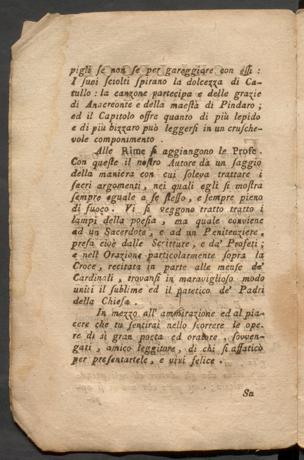 pigli se non se per gareggiare con essi :
I suoi sciolti spirano la dolcezza di Ca-
tullo : la canzone partecipa e delle grazie
di Anacreonte e della maestà di Pindaro ;
ed il Capitolo offre quanto di più lepido
e di più bizzaro può leggersi in un crusche-
vole componimento .
Alle Rime si aggiongono le Prose .
Con queste il nostro Autore da un saggio
della maniera con cui soleva trattare i
sacri argomenti, nei quali egli si mostra
sempre eguale a se stesso, e sempre pieno
di fuoco. Vi si veggono tratto tratto i
lampi della poesia, ma quale conviene
ad un Sacerdote, e ad un Penitenziere,
presa cioè dalle Scritture, e da' Profeti ;
e nell' Orazione particolarmente sopra la
Croce, recitata in parte alle mense de'
Cardinali, trovansi in maraviglioso modo
uniti il sublime ed il patetico de' Padri
della Chiesa .
In mezzo all' ammirazione ed al pia-
cere che tu sentirai nello scorrere le ope-
re di sì gran poeta ed oratore, sovven-
gati, amico leggitore, di chi si affaticò
per presentartele, e vivi felice .
Su